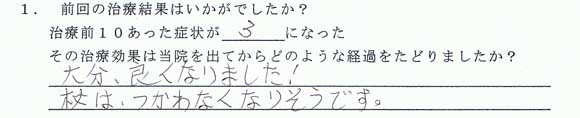 1. 前回の治療結果はいかがでしたか?
治療前10あった症状が 3 になった
その治療効果は当院を出てからどのような経過をたどりましたか?
大分、良くなりました!
杖は、つかわなくなりそうです。